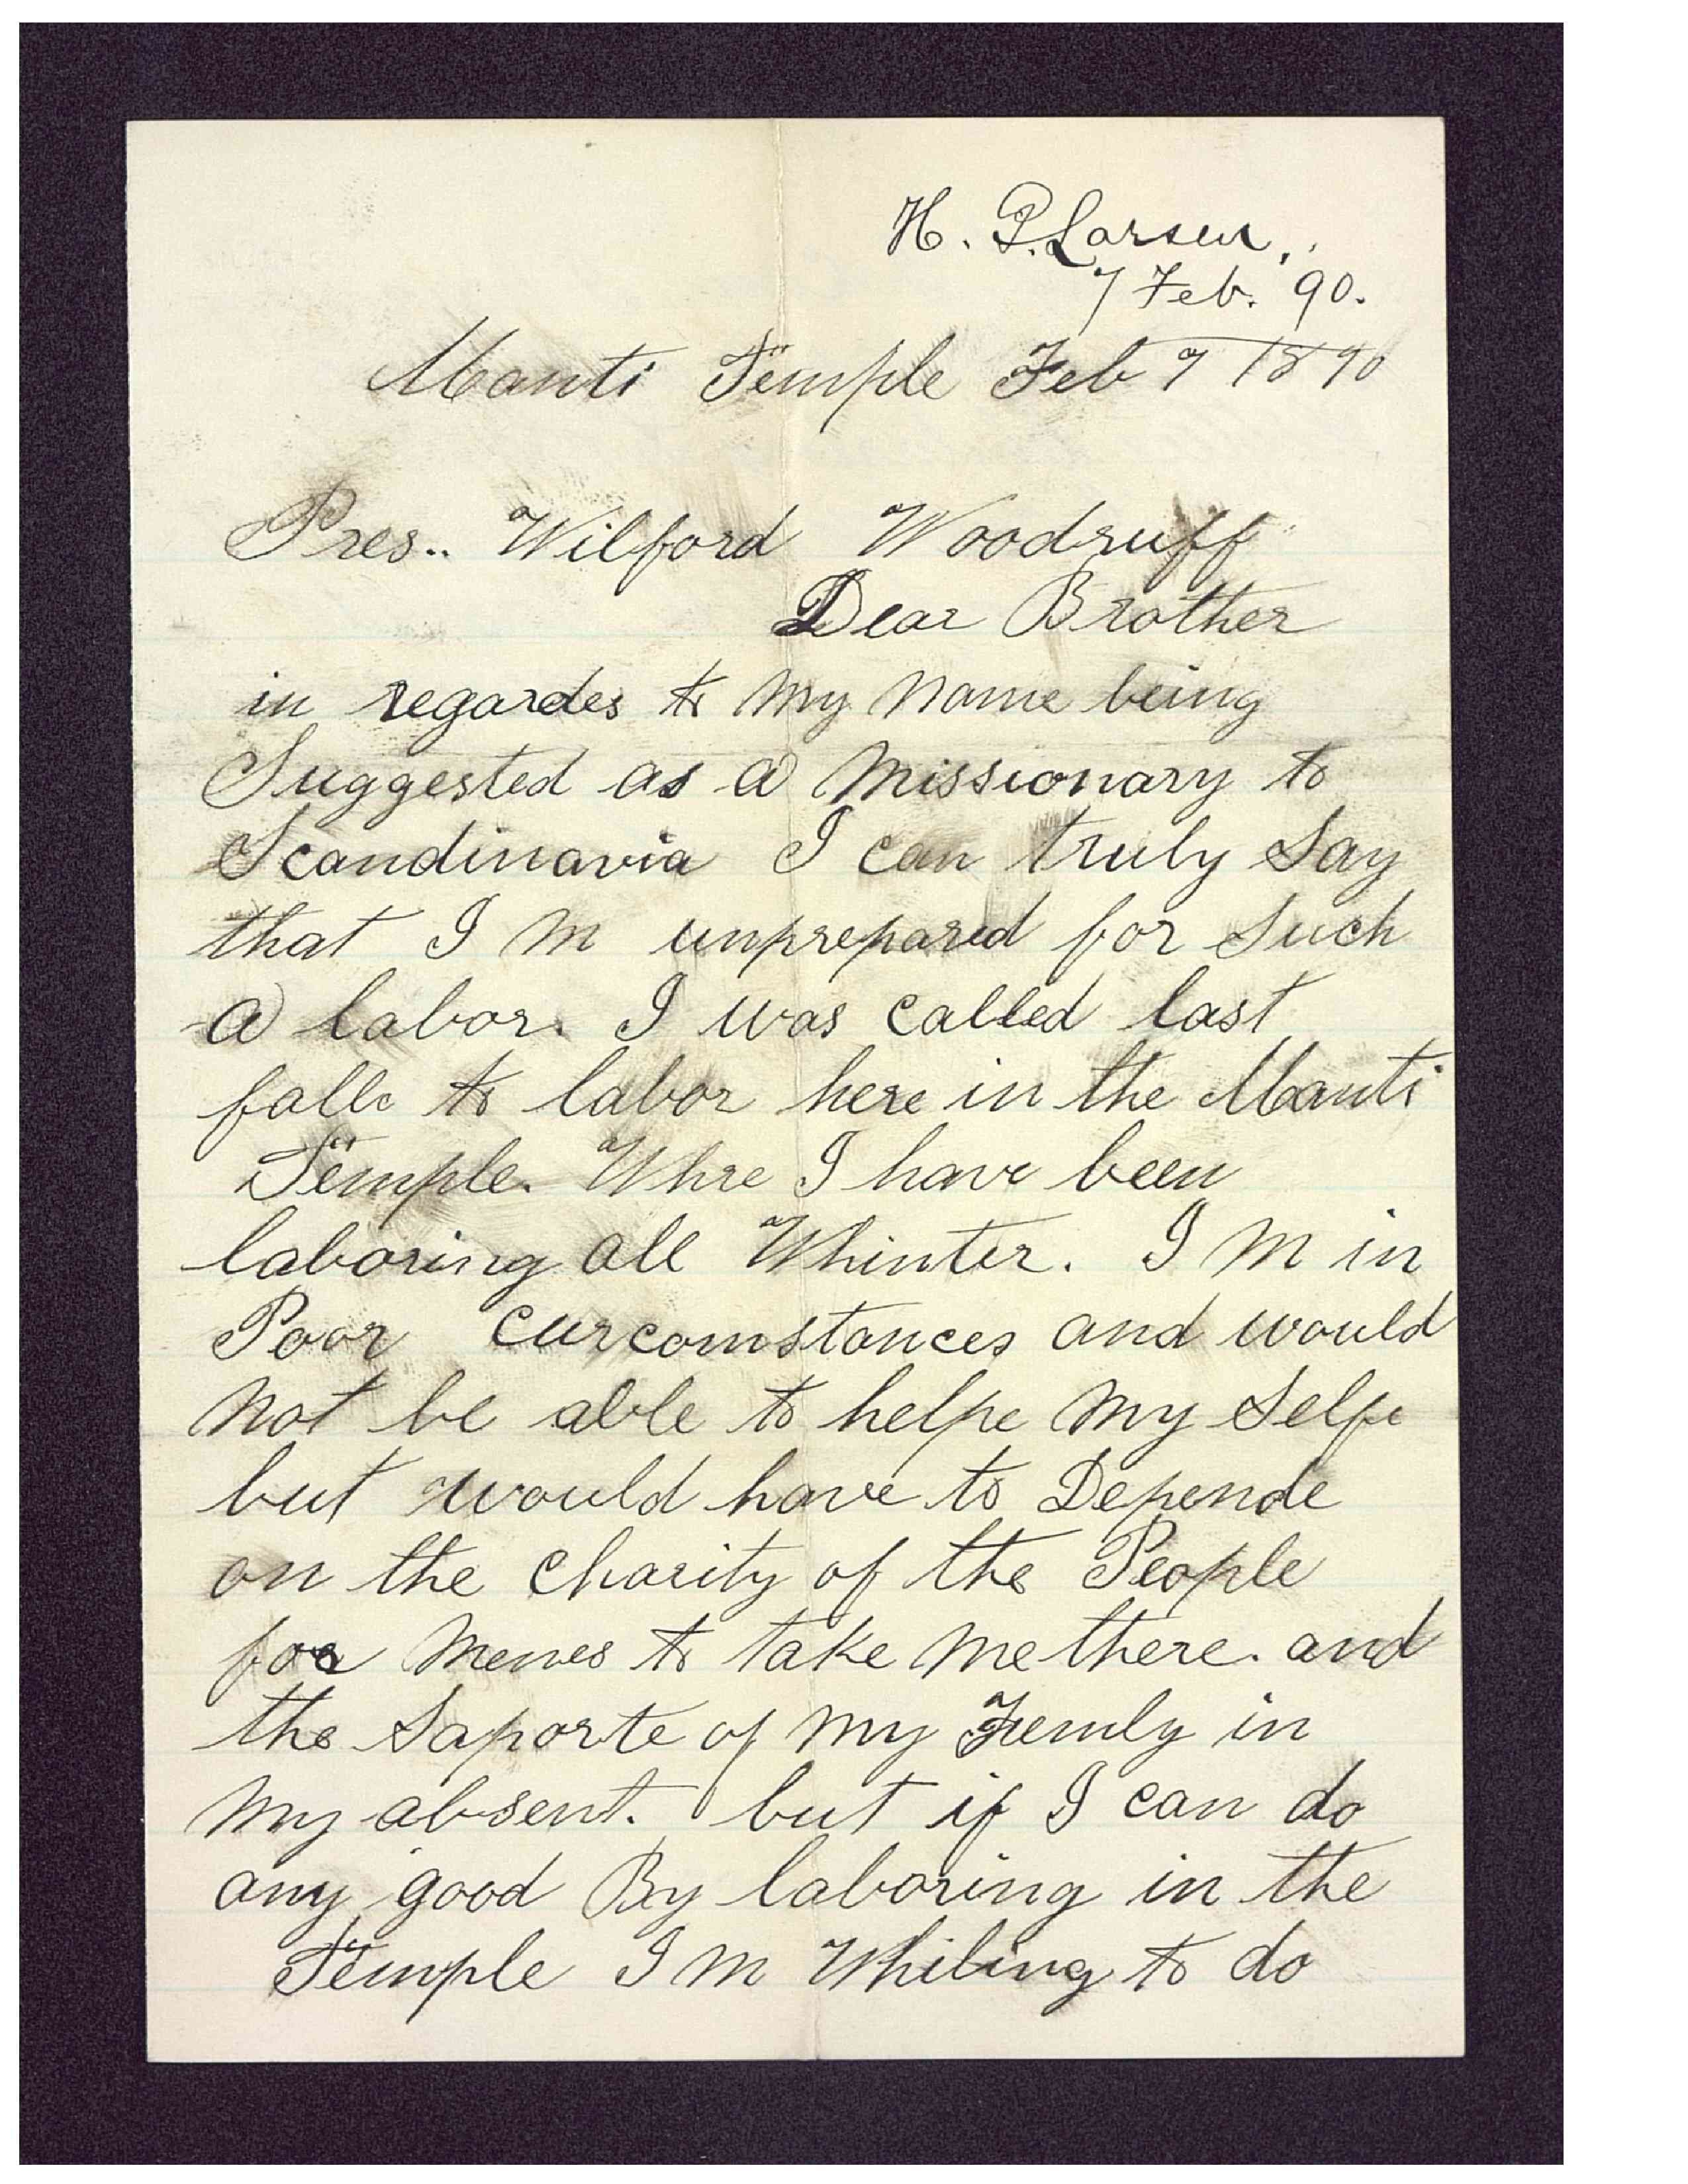 H. P. Larsen,
7 Feb. 90.
Manti Temple Feb 7 1890
Pres.. Wilford Woodruff
Dear Brother
in regardes to my name being
Suggested as a missionary to
Scandinavia I can truly Say
that I m unprepared for Such
a labor. I was called last
falle to labor here in the Manti
Temple. Whre I have been
laboring all Whinter. I m in
Poor curcomstances and would
not be able to helpe my Selfe
but would have to Depende
on the charity of the People
for menes to take me there. and
the Saporte of my Femly in
my absent. but if I can do
any good By laboring in the
Temple I m Whiling to do